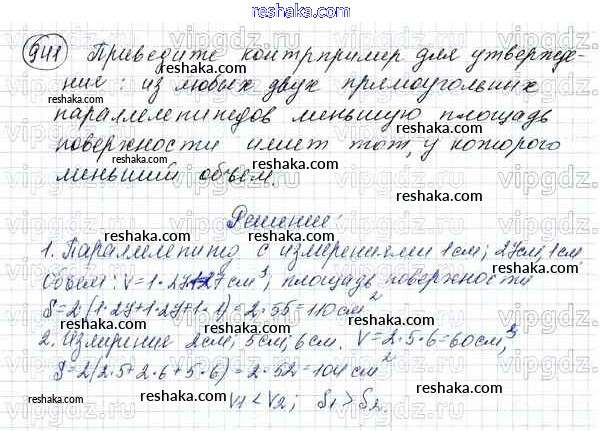 reshaka.com
941 Приведите контрпример для утвержде-
ние: из любых двух прямоугольных
параллелепипедов меньшую площадь
поверхности имеет тот, у которого
меньший объём.
Решение:
1. Параллелепипед с измерениями 1см; 27см; 1см
Объём: V=1·27·1=27см³, площадь поверхности
S=2(1·27+1·27+1·1)=2·55=110см²
2. Измерение 2см; 5см; 6см. V=2·5·6=60см³,
S=2(2·5+2·6+5·6)=2·52=104см²
V1<V2; S1>S2.
reshaka.com